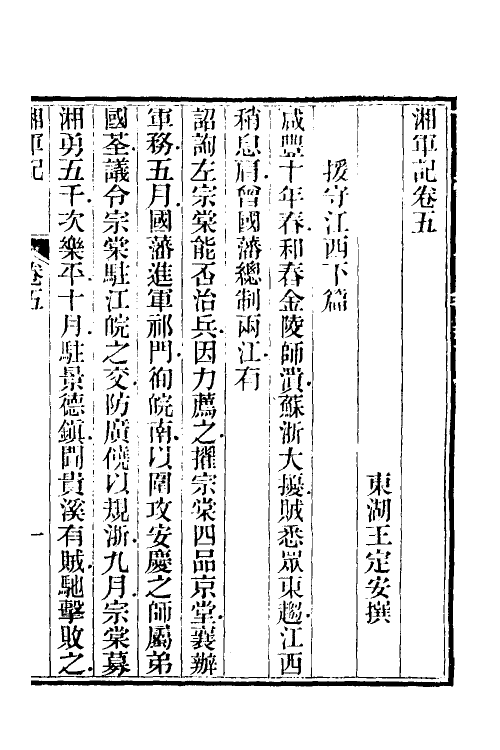 湘軍記卷五
東湖王定安撰
援守江西下篇
咸豐十年春和春金陵師潰蘇浙大擾賊悉眾東趨江西
稍息肩曾國藩總制兩江有
詔詢左宗棠能否治兵因力薦之擢宗棠四品京堂襄辦
軍務五月國藩進軍祁門徇皖南以圍攻安慶之師屬弟
國荃議令宗棠駐江皖之交防廣饒以規浙九月宗棠募
湘勇五千次樂平十月駐景德鎮聞貴溪有賊馳擊敗之
湘軍記
卷五
一